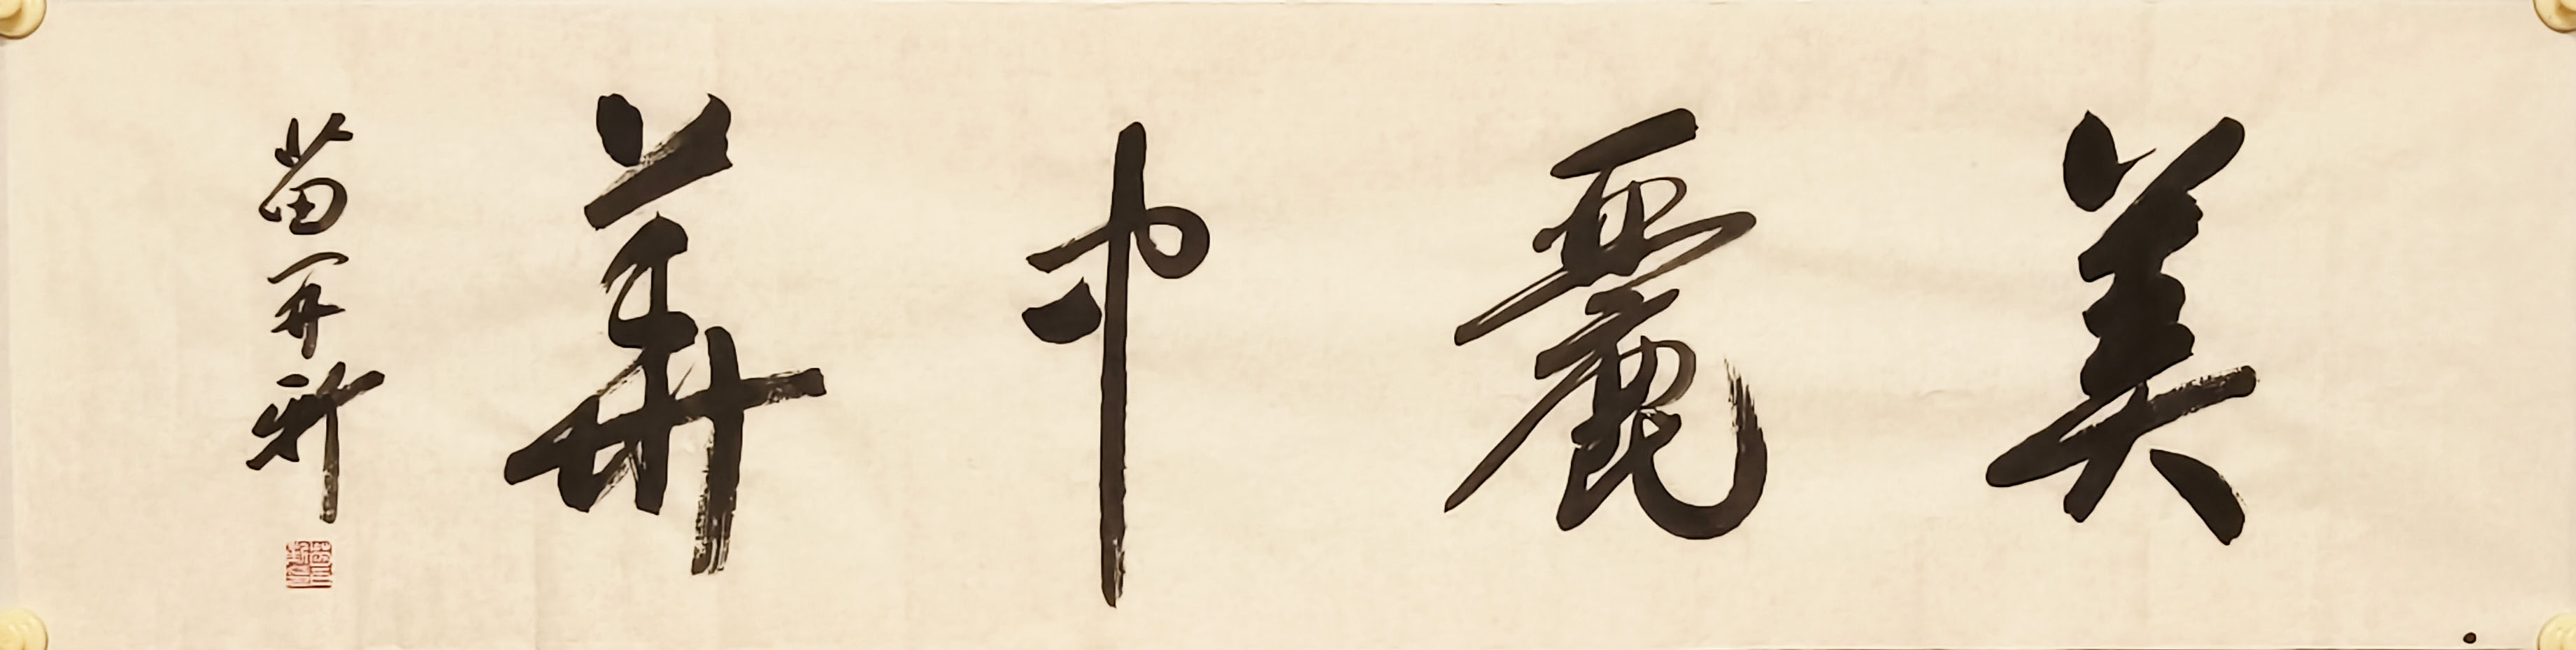 美麗中華
苗再新